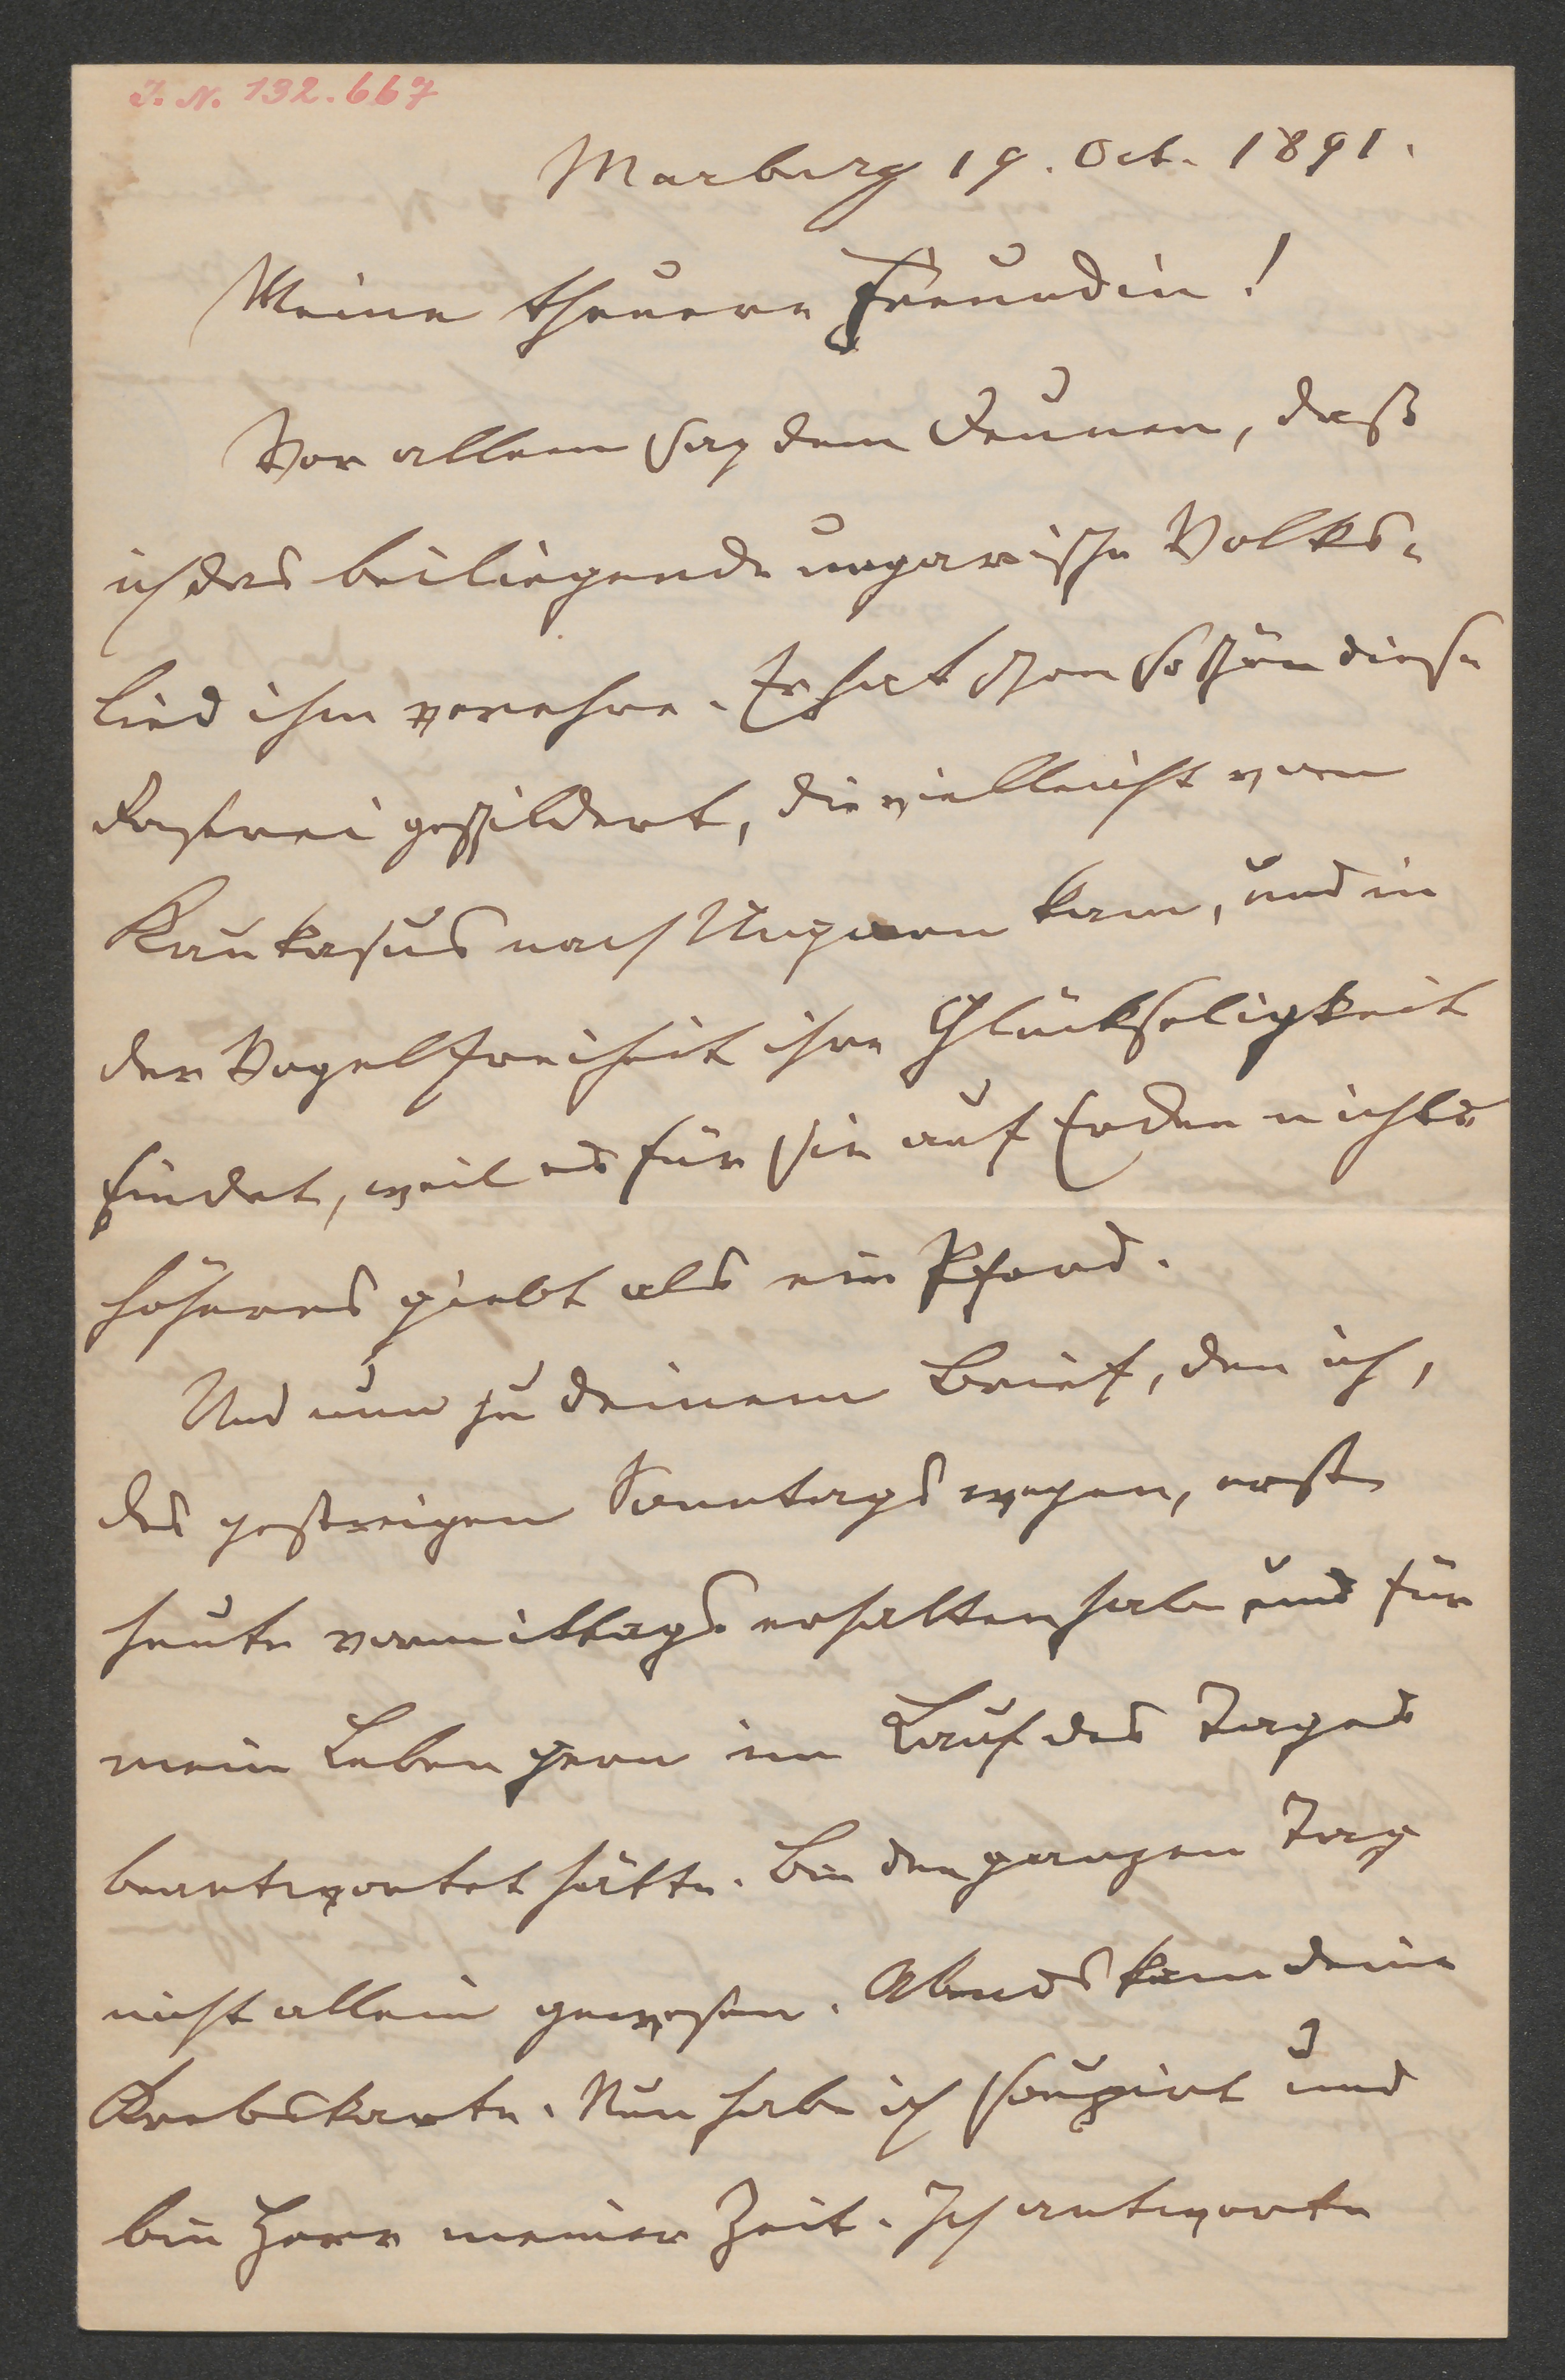 J. N. 132.667
Marburg 19. Oct. 1891.
Meine theuere Freundin!
Vor allem sag dem Braunen, daß
ich das beiliegende ungarische Volks-
lied ihm verehre. Er hat schon so schön diese
geschildert, die vielleicht vom
Kaukasus nach Ungarn kam, und in
der Vogelfreiheit ihre Glückseligkeit
findet, weil es für sie auf Erden nichts
höheres giebt als ein Pferd.
Und nun zu deinem Brief, den ich,
des gestrigen Sonntags wegen, erst
heute vormittags erhalten habe und für
mein Leben gern im Lauf des Tages
beantwortet hätte. Bin den ganzen Tag
nicht allein gewesen. Abends kam deine
Krebskarte. Nun habe ich soupirt und
bin Herr meiner Zeit. Ich antworte